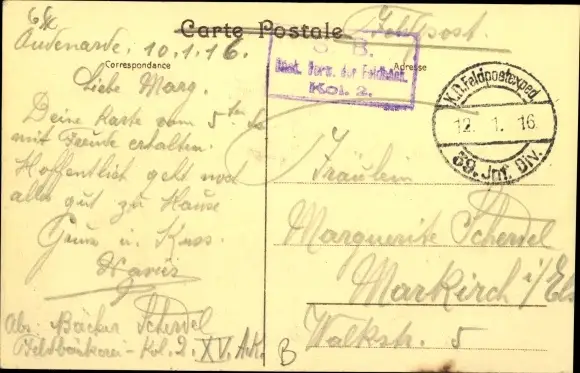 Carte Postale
Feldpost.
Audenarde, 10.1.16.
Correspondance
Adresse
S. B.
der Feldbäck.
Kol. 2.
K.D. Feldpostexped.
12. 1. 16
39. Jnf. Div.
Liebe Marg.
Deine Karte vom 5ten
mit Freude erhalten.
Hoffentlich geht noch
alles gut zu Hause
Gruss u. Kuss.
Fräulein
Marguerite Scherdel
Markirch i/Els
Walkstr. 5
Abs: Bäcker Scherdel
Feldbäckerei-Kol. 2. XV. A.K.
B